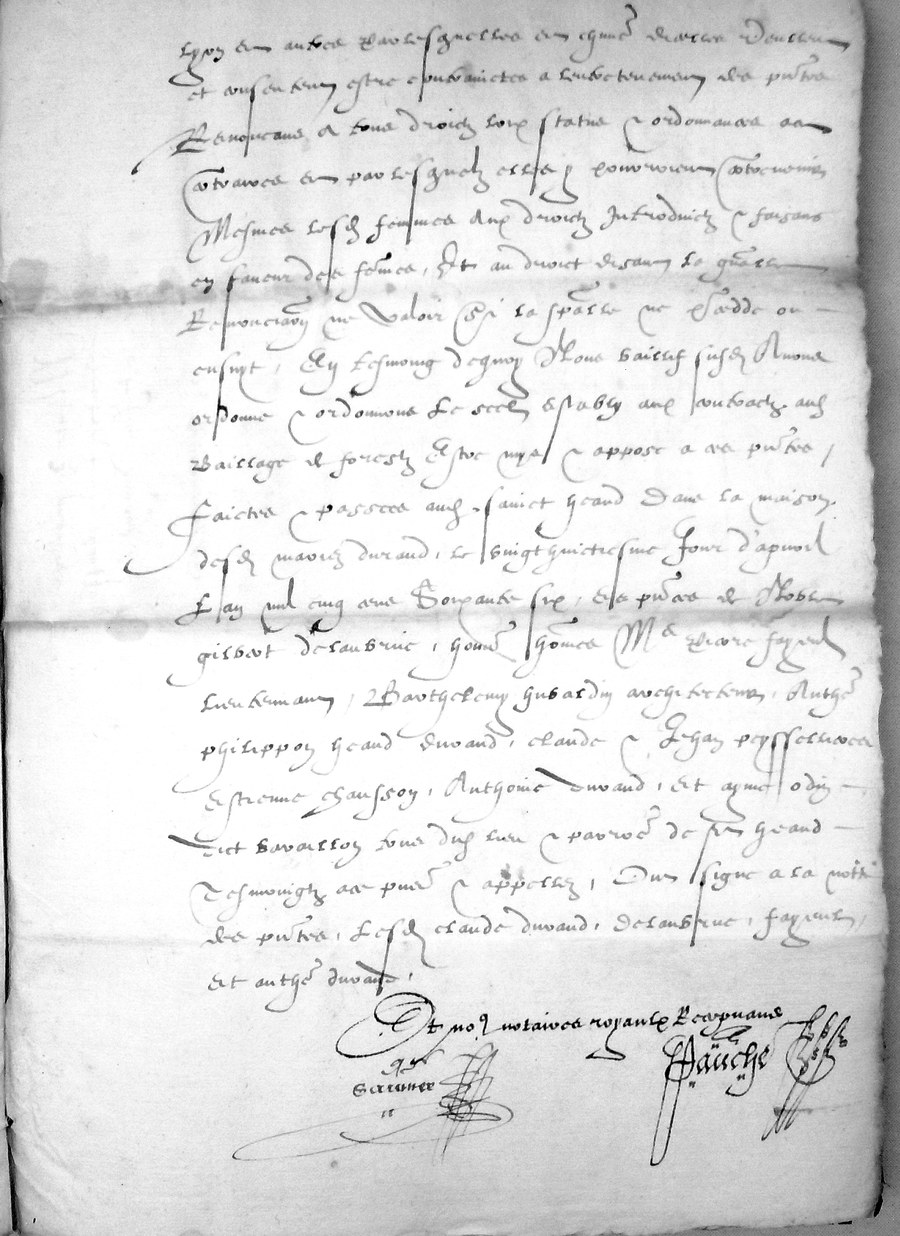 lyon en autres par lesquelles en chune dicelles veullent
et consentent estre contrainctes a lentretenement des pntes
Renoncans a tous droictz loix statuz & ordonnances a ce
contraires en par lesquelz elles y pourroient contrevenir
Mesmes lesd femmes aux droictz Introduictz & faisans
en faveur des femes, Et au droict disant la gnalle
Renonciaon ne valoir si la spalle ne pcedde ou
ensuyt, En tesmoing dequoy Nous baillif susd Avons
ordonne & ordonnons le scel estably aux contractz aud
Bailliage de forestz Estre mys & appose a ces pntes,
Faictes & passees aud sainct heand Dans la maison
desd mariez durand, le vingthuictiesme Jour d'apvril
L'an mil cinq cens Soixante six, es pnces de Noble
gilbert delaubrue, honne homes Me Pierre fayeul
lieutennant, Barthelemy hubaldin architecteur, Anthe
philippon heand durand, claude & Jehan peyssellieres
Estienne chausson, Anthoine durand, et ayme odin
dict bavaillon tous dud lieu & parroe de sainct heand
Tesmoingtz a ce pnes & appellez, Ont signe a la notte
des pntes, Lesd claude durand, delaubrue, fayeul,
et anthe durand,
Et no9 notaires royaulx Recepvans
Pauche